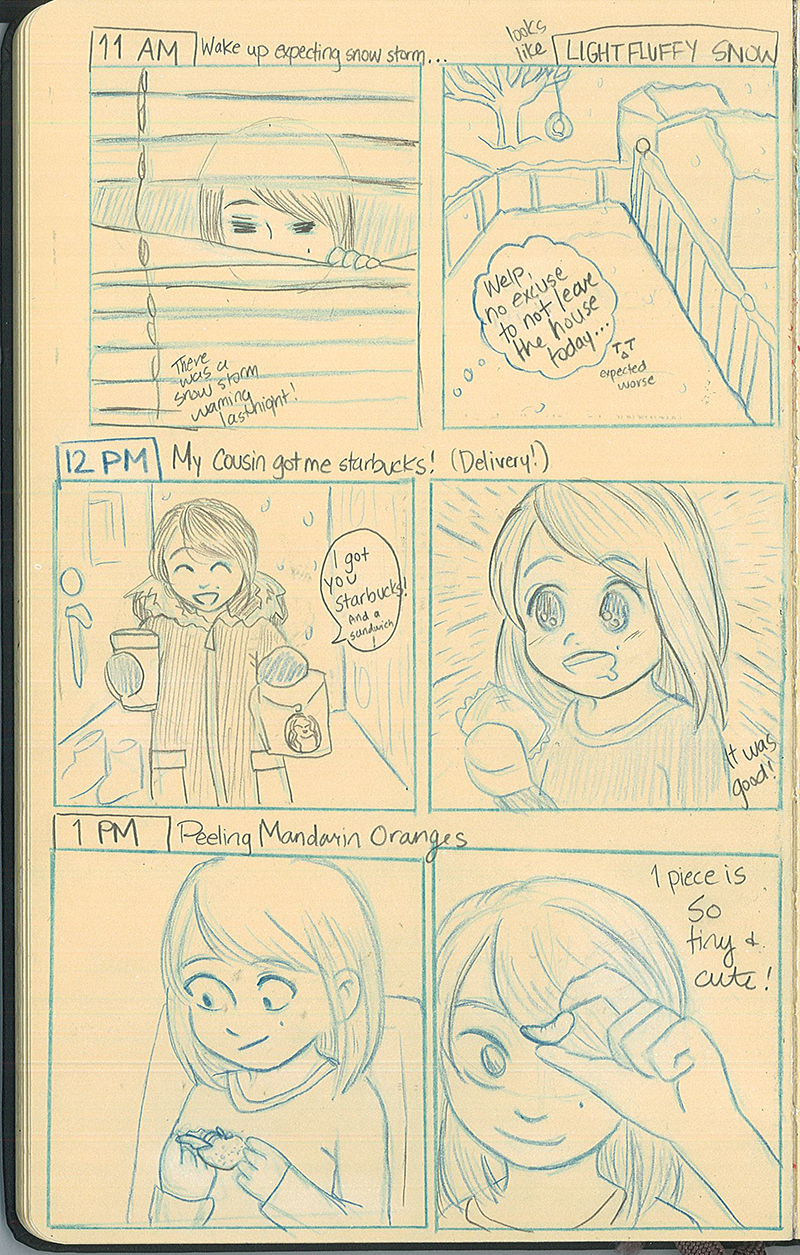 11 AM Wake up expecting snow storm...
looks
like
LIGHT FLUFFY SNOW
There
was a
snow storm
warning
last night!
Welp,
no excuse
to not leave
the house
today...
T T
expected
worse
12 PM My Cousin got me starbucks! (Delivery!)
I got
you
starbucks!
And a
sandwich
!
It was
good!
1 PM Peeling Mandarin Oranges
1 piece is
so
tiny &
cute!